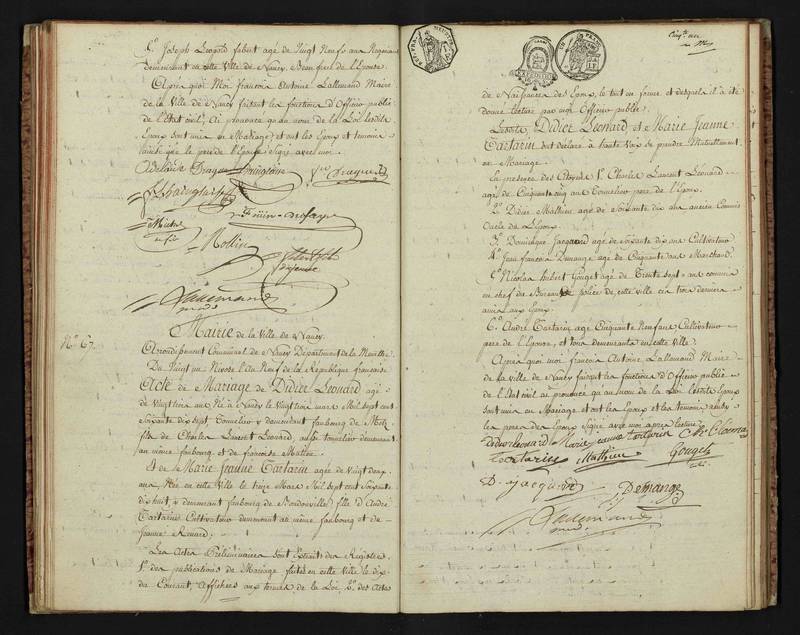 5.° Joseph Leopold febert agé de Vingt Neuf ans Negociant
demeurant en cette Ville de Nancy, Beaufrere de l'Epouse.
Après quoi Moi françois Antoine Lallemand Maire
de la Ville de Nancy faisant les fonctions d'Officier public
de l'Etat civil, Ai prononcé qu'au nom de la Loi lesdits
Epoux sont unis en Mariage, et ont les Epoux et temoins
le pere de l'Epouse Signé avec moi.
Rollin
Lallemand
maire
N.° 67.
Mairie de la Ville de Nancy
Arrondissement Communal de Nancy Département de la Meurthe.
Du Vingt un Nivose l'an Neuf de la République française
Acte de Mariage de Didier Léonard agé
de Vingt trois ans Né à Nancy le Vingt trois mars Mil Sept cent
Soixante dix Sept, Tonnelier y demeurant faubourg de Metz
fils de Charles Laurent Léonard, aussi tonnelier demeurant
au même faubourg et de françoise Mathieu
Et de Marie Jeanne Tartarin agée de Vingt deux
ans Née en cette Ville le treize Mars Mil Sept cent Soixante
dix huit, y demeurant faubourg de Boudonville, fille d'André
Tartarin Cultivateur demeurant au même faubourg et de
Jeanne Renard;
Les Actes Préliminaires sont Extraits des Régistres
1.° des publications de Mariage faites en cette Ville le dix
du Courant, Affichées aux termes de la Loi, 2.° des Actes
de Naissances des Epoux, le tout en forme et desquels il a été
donné lecture par moi Officier public.
Lesdits Didier Léonard et Marie Jeanne
Tartarin ont déclaré à haute Voix se prendre Mutuellement
en Mariage.
En présence des Citoyens 1.° Charles Laurent Léonard
agé de Cinquante cinq ans Tonnelier pere de l'Epoux.
2.° Didier Mathieu agé de Soixante dix ans ancien Commis
Oncle de l'Epoux.
3.° Dominique Jacquard agé de soixante dix ans Cultivateur
4.° Jean françois Demange agé de Cinquante ans Marchand.
5.° Nicolas hubert Gouget agé de Trente Sept ans commis
en chef du Bureau de police de cette ville ces trois derniers
amis aux Epoux.
6.° André Tartarin agé Cinquante Neuf ans Cultivateur
pere de l'Epouse, et tous demeurants en cette Ville.
Après quoi moi francois Antoine Lallemand Maire
de la ville de Nancy faisant les fonctions d'Officier public
de l'Etat civil ai prononcé qu'au nom de la Loi lesdits Epoux
sont unis en Mariage et ont les Epoux et les temoins ainsi
les peres des Epoux Signé avec moi après lecture
Didier leonard Marie jeanne tartarin
tartarin Mathieu Gouget
D. jacquard Demange
Lallemand
maire